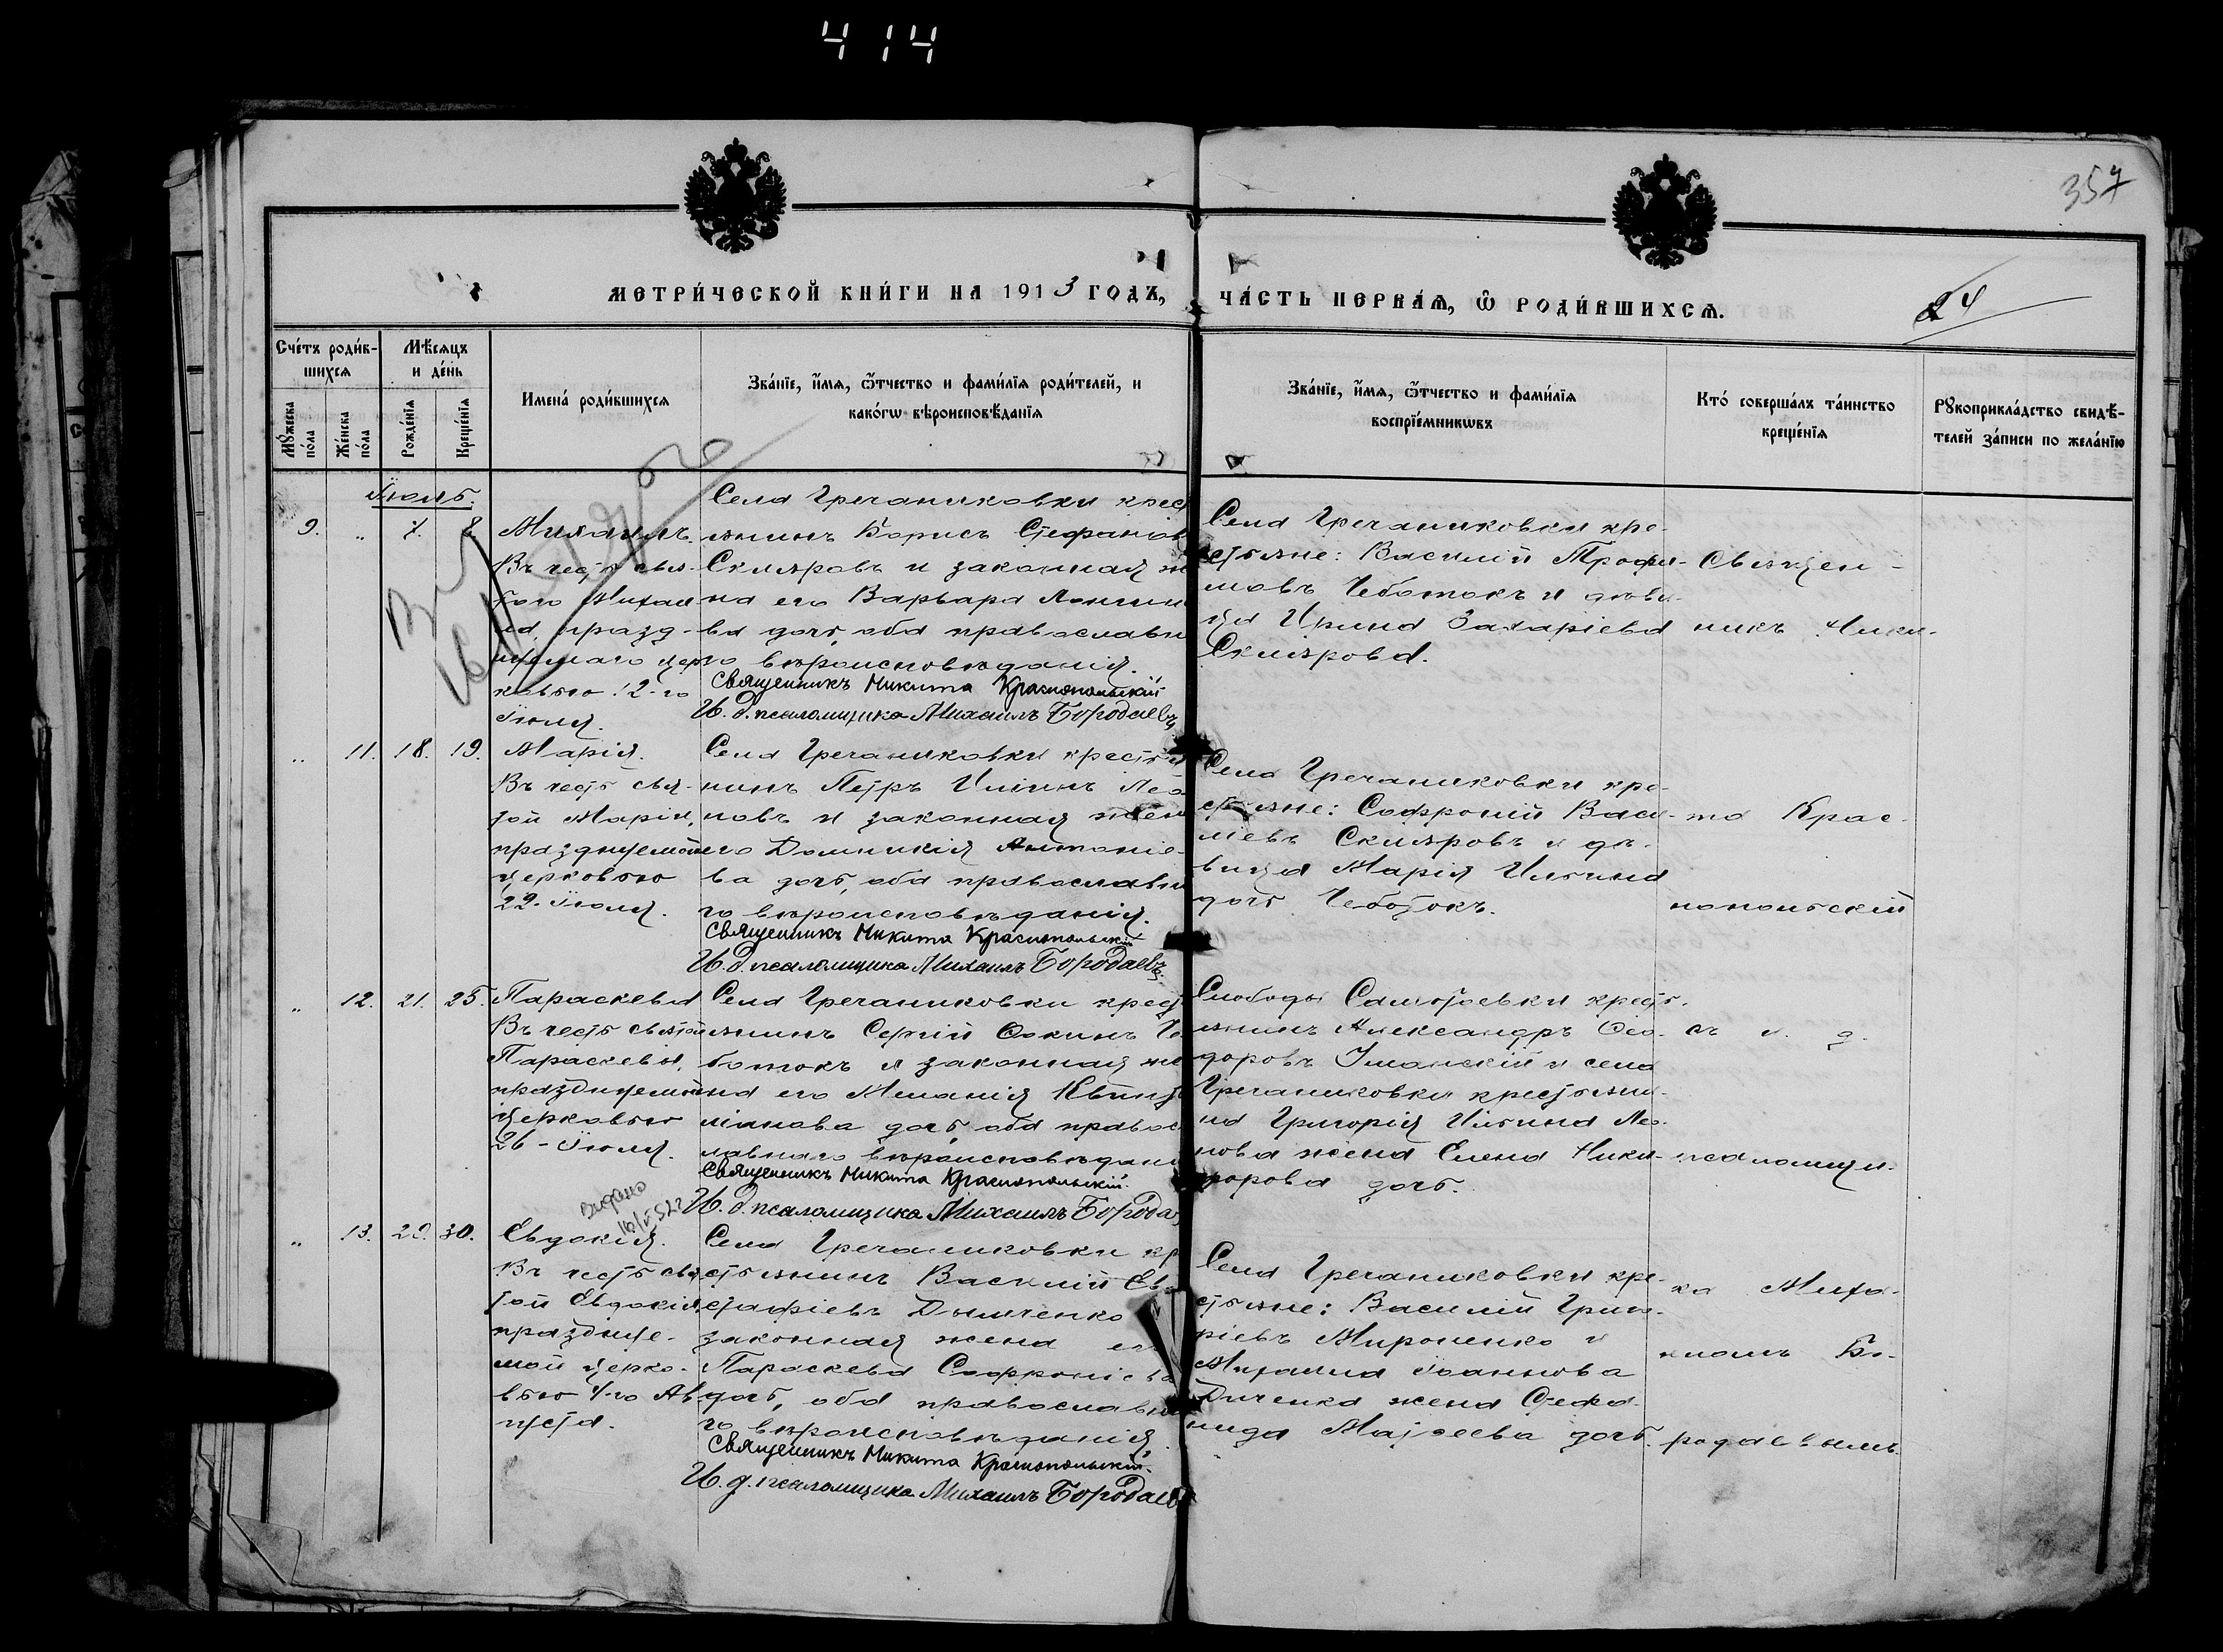 414
357
МЕТРИ́ЧЕСКОЙ КНИ́ГИ НА 1913 ГОДЪ,
ЧА́СТЬ ПЕРВАѦ, Ѡ҆ РОДИ́ВШИХСѦ.
24
Сче́тъ роди́в-
шихсѧ
Мѣ́сѧцъ
и де́нь
Имена́ роди́вшихсѧ
Зва́нїе, и҆́мѧ, ѻ҆́тчество и фами́лїѧ роди́телей, и
како́гѡ вѣроисповѣ́данїѧ
Мꙋ́жеска
по́ла
Же́нска
по́ла
Рожде́нїѧ
Креще́нїѧ
Зва́нїе, и҆́мѧ, ѻ҆́тчество и фами́лїѧ
воспрїе́мникѡвъ
Кто́ соверша́лъ та́инство
креще́нїѧ
Рꙋкоприкла́дство свидѣ́-
телей за́писи по жела́нїю
Іюль.
9. „ 7. 8
Михаилъ.
Въ честь свя-
того Михаи-
ла, празд-
нуемаго цер-
ковью 12-го
Іюля.
Села Гречаниковки крес
янинъ Борисъ Стефанов
Скляровъ и законная ж
на его Варвара Лонгин
ва дочь, оба православн
го вѣроисповѣданія.
Священникъ Никита Краснопольскій
И. д. псаломщика Михаилъ Бородаевъ
Села Гречаниковки кре-
стьяне: Василій Трофи-
мовъ Чеботокъ и дѣви-
ца Ирина Захаріева
Склярова.
Священ-
никъ Ники-
„ 11. 18. 19.
Марія.
Въ честь свя-
той Маріи,
празднуемой
церковью
22-Іюля.
Села Гречаниковки крестья
нинъ Петръ Ильинъ Лео
новъ и законная жен
его Домникія Антоніе-
ва дочь, оба православн
го вѣроисповѣданія.
Священникъ Никита Краснопольскій
И. д. псаломщика Михаилъ Бородаевъ.
Села Гречаниковки кре-
стьяне: Софроній Васи-
ліевъ Скляровъ и дѣ-
вица Марія Ильина
дочь Чеботокъ.
та Крас-
нопольскій
„ 12. 21. 25.
Параскева
Въ честь святой
Параскевы,
празднуемой
церковью
26-Іюля.
Села Гречаниковки крест
янинъ Сергій Фокинъ Че
ботокъ и законная же
на его Меланія
дочь, оба правос
лавнаго вѣроисповѣдані
Священникъ Никита Краснопольскій.
И. д. псаломщика Михаилъ Борода
Слободы Самотоевки кресть-
янинъ Александръ Ѳео-
доровъ Уманскій и села
Гречаниковки крестьяни-
на Григорія Ильина Лео-
нова жена Елена Ники-
форова дочь.
съ и. д.
псаломщи-
Выдано
„ 13. 29. 30.
Евдокія.
Въ честь свя
той Евдокіи
празднуе-
мой церко-
вью 4-го Ав-
густа.
Села Гречаниковки кр
стьянинъ Василій Ев-
стафіевъ Дымченко
законная жена ег
Параскева Софроніева
дочь, оба православн
го вѣроисповѣданія.
Священникъ Никита Краснопольскій.
И. д. псаломщика Михаилъ Бородаев
Села Гречаниковки кре-
стьяне: Василій Григо-
ріевъ Мироненко и
Михаила Іоаннова
жена Стефа-
нида Матѳеева дочь.
ка Миха-
иломъ Бо-
родаевымъ.